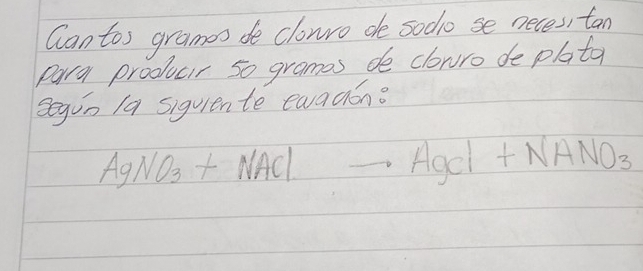 Cuantos gramos de cloruro de sodio se necesitan
para producir 50 gramos de cloruro de plata
según la siguiente ecuación:
AgNO3 + NACl → Agcl + NANO3